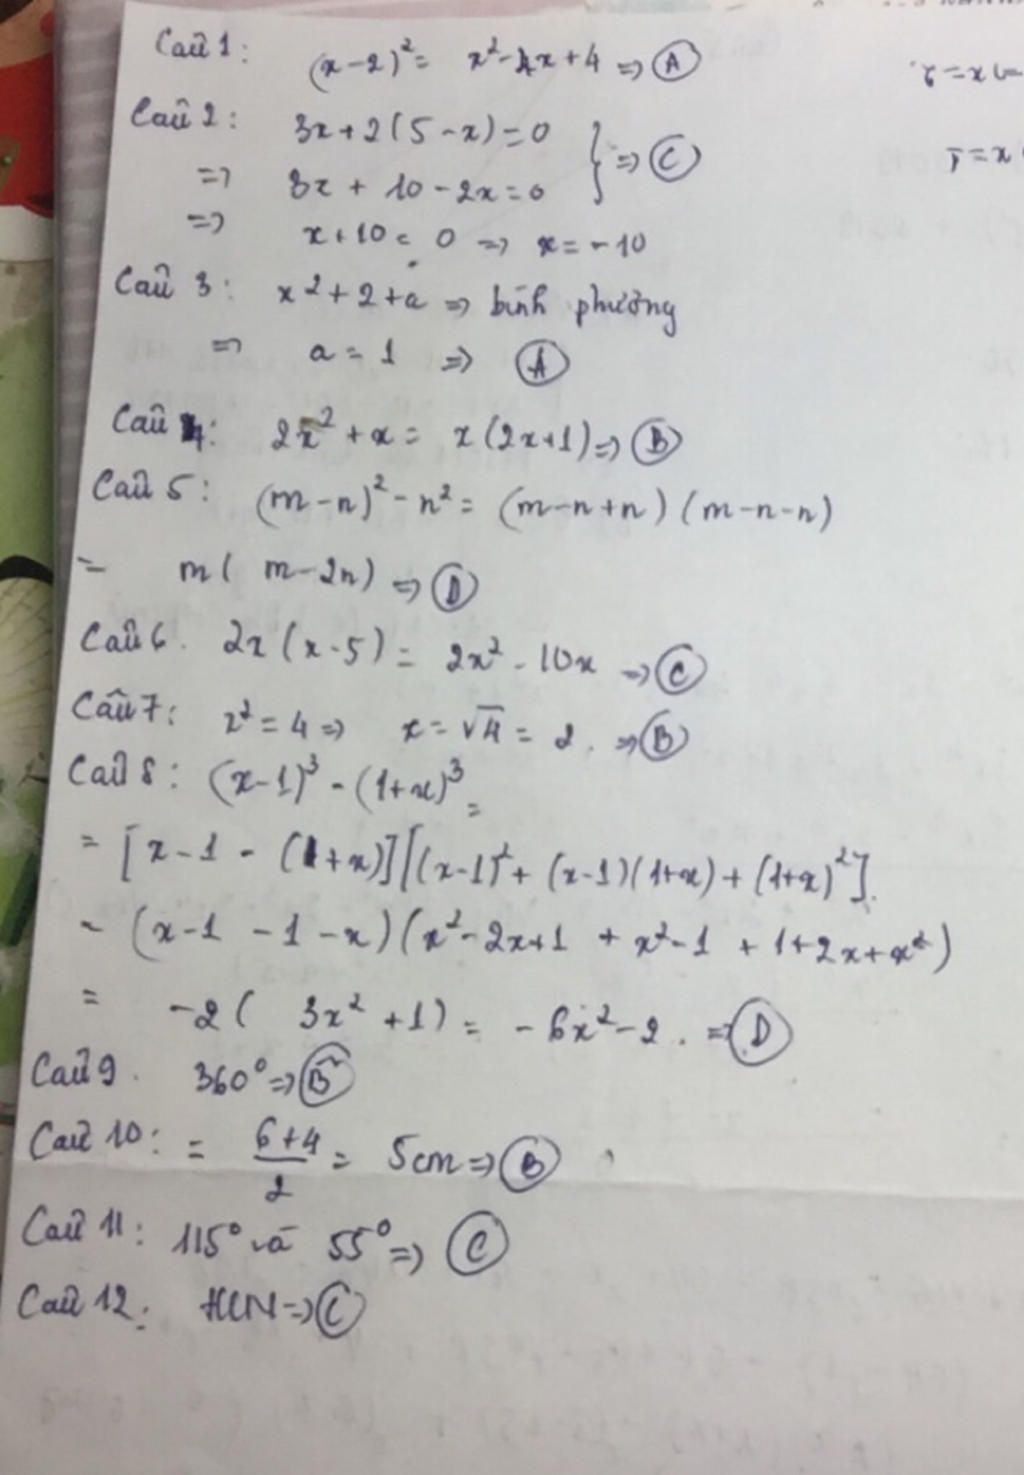 Câu 1: (x-2)² = x²-4x+4 => Ⓐ
Câu 2: 3x+2(5-x)=0
=> 3x + 10 - 2x = 0 } => Ⓒ
=> x+10 = 0 => x = -10
Câu 3: x²+2+a => bình phương
=> a = 1 => Ⓐ
Câu 4: 2x²+x = x(2x+1) => Ⓑ
Câu 5: (m-n)²-n² = (m-n+n)(m-n-n)
= m(m-2n) => Ⓓ
Câu 6. 2x(x-5) = 2x²-10x => Ⓒ
Câu 7: x² = 4 => x = √4 = 2. => Ⓑ
Câu 8: (x-1)³ - (1+x)³ =
= [x-1 - (1+x)][(x-1)² + (x-1)(1+x) + (1+x)²].
= (x-1 -1-x)(x²-2x+1 + x²-1 + 1+2x+x²)
= -2(3x²+1) = -6x²-2. => Ⓓ
Câu 9. 360° => Ⓑ
Câu 10: = (6+4)/2 = 5cm => Ⓑ
Câu 11: 115° và 55° => Ⓒ
Câu 12: HCN => Ⓒ
=> x=2.
x=1